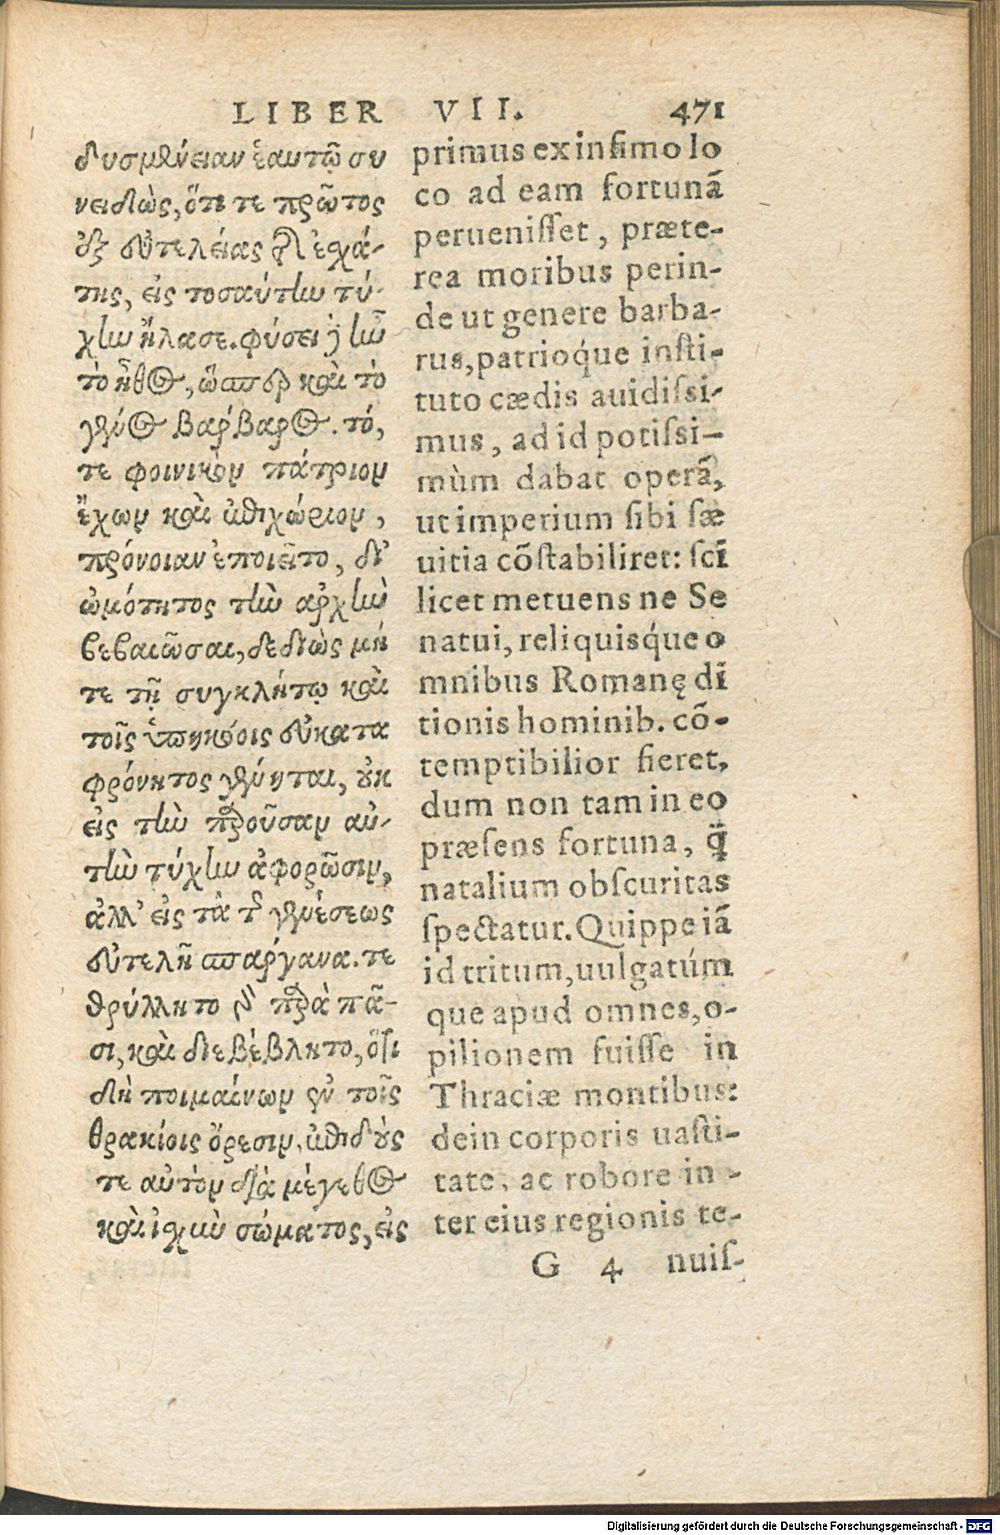 LIBER VII. 471
δυσμένειαν ἑαυτῷ συ
νειδὼς, ὅτι τε πρῶτος
ἐξ εὐτελείας τῆς ἐσχά-
της, εἰς τοσαύτην τύ-
χην ἤλασε. φύσει δὲ ἦν
τὸ ἦθος, ὥσπερ καὶ τὸ
γένος βάρβαρος. τό,
τε φοινικὸν πάτριον
ἔχων καὶ ἐπιχώριον,
πρόνοιαν ἐποιεῖτο, δι'
ὠμότητος τὴν ἀρχὴν
βεβαιῶσαι, δεδιὼς μή
τε τῇ συγκλήτῳ καὶ
τοῖς ὑπηκόοις εὐκατα
φρόνητος γένηται, οὐκ
εἰς τὴν παροῦσαν αὐ-
τὴν τύχην ἀφορῶσιν,
ἀλλ' εἰς τὰ τῆς γενέσεως
εὐτελῆ σπάργανα. τε
θρύλλητο γὰρ παρὰ πᾶ-
σι, καὶ διεβέβλητο, ὅτι
δὴ ποιμαίνων ἐν τοῖς
θρακίοις ὄρεσιν, ἐπιδούς
τε αὐτὸν διὰ μέγεθος
καὶ ἰσχὺν σώματος, εἰς
primus ex infimo lo
co ad eam fortunā
peruenisset, præte-
rea moribus perin-
de ut genere barba-
rus, patrioq́ue insti-
tuto cædis auidissi-
mus, ad id potissi-
mùm dabat operā,
ut imperium sibi sæ
uitia cōstabiliret: scī
licet metuens ne Se
natui, reliquisq́ue o
mnibus Romanę dī
tionis hominib. cō-
temptibilior fieret,
dum non tam in eo
præsens fortuna, q̄
natalium obscuritas
spectatur. Quippe iā
id tritum, uulgatúm
que apud omnes, o-
pilionem fuisse in
Thraciæ montibus:
dein corporis uasti-
tate, ac robore in-
ter eius regionis te-
G 4 nuis-
Digitalisierung gefördert durch die Deutsche Forschungsgemeinschaft - DFG